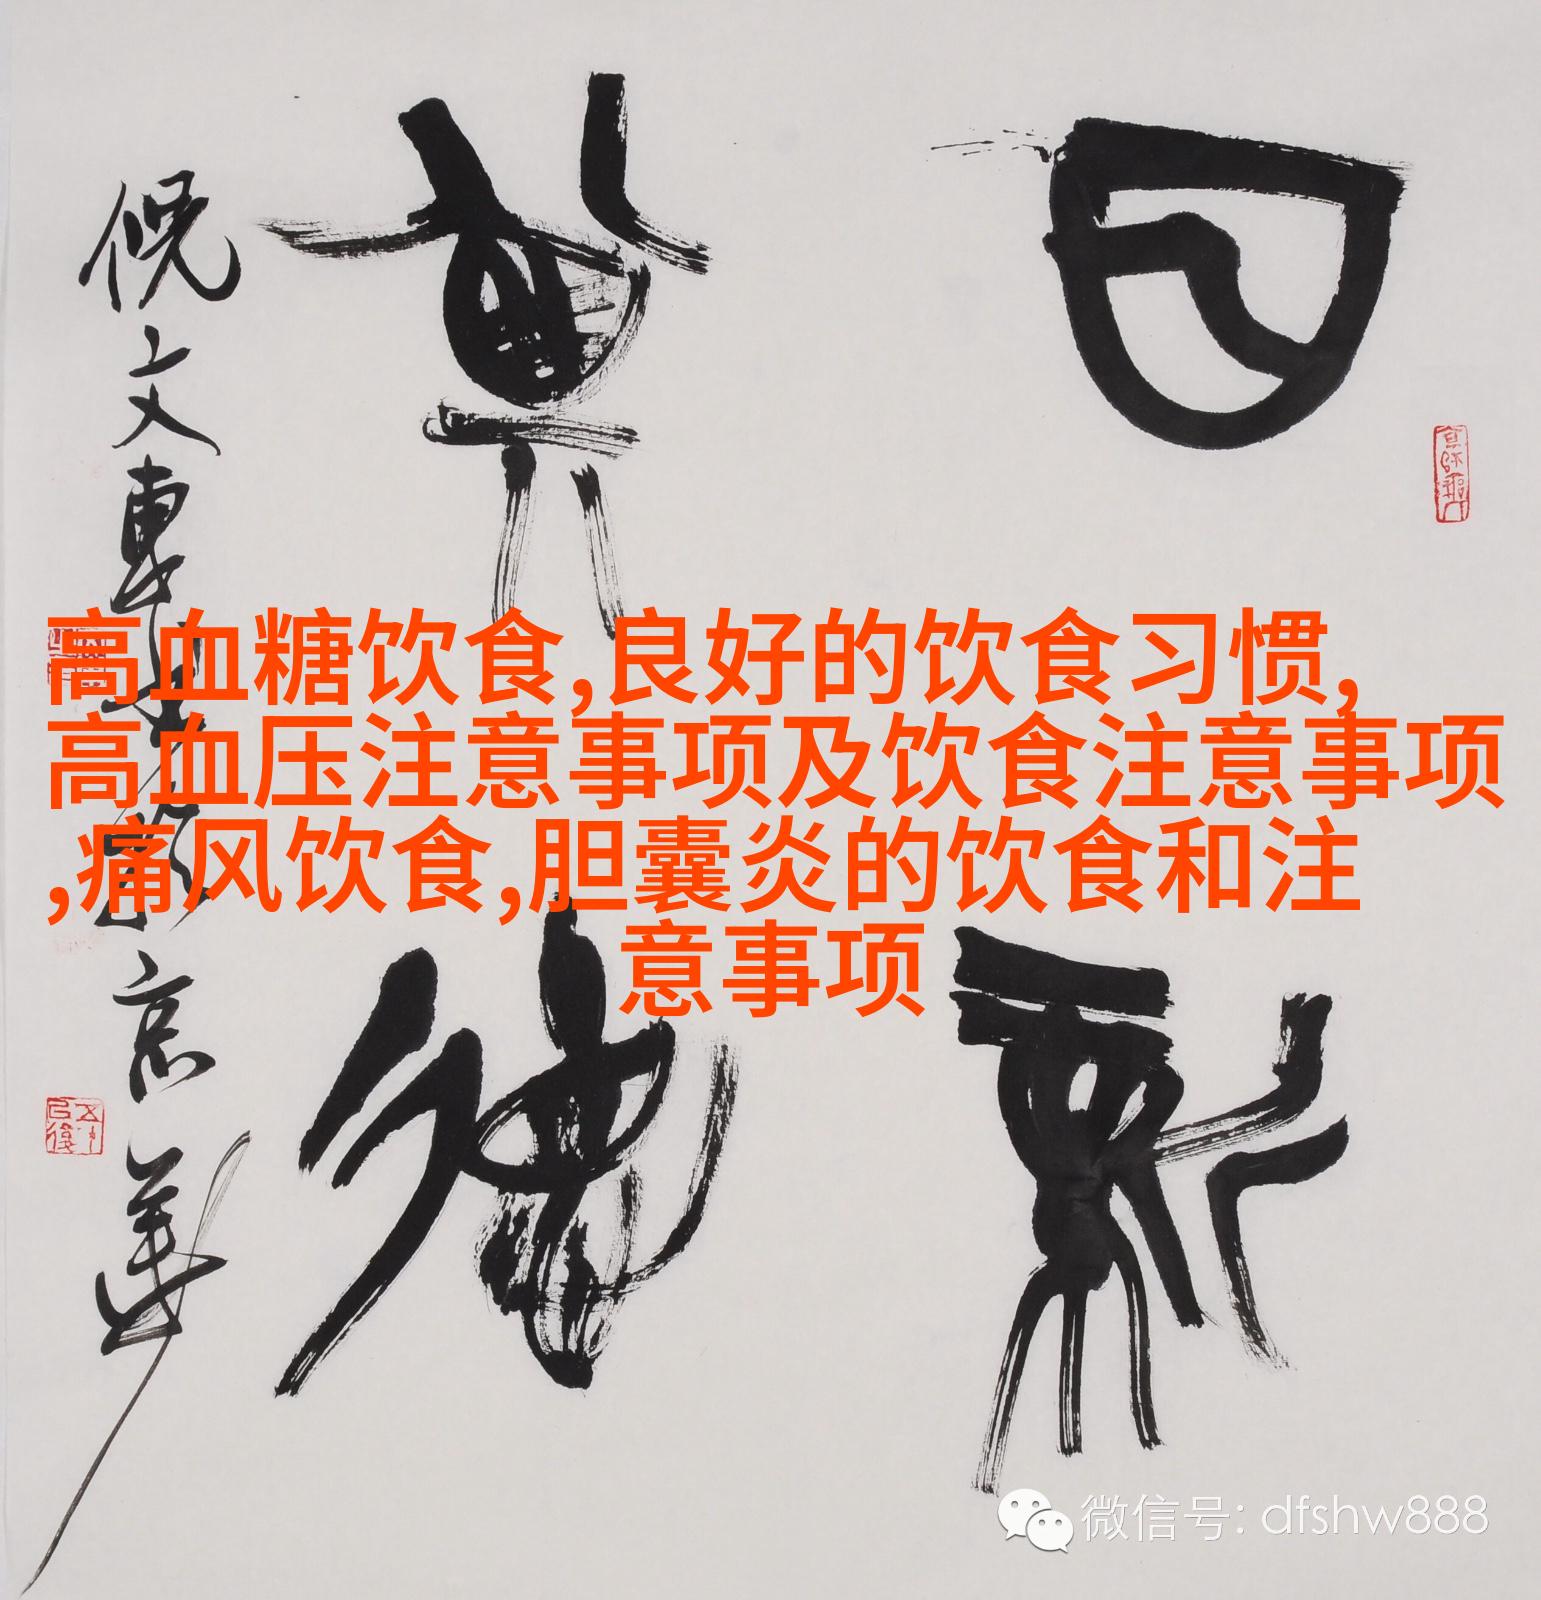 高血糖饮食,良好的饮食习惯,
高血压注意事项及饮食注意事项
,痛风饮食,胆囊炎的饮食和注
意事项
日新
其德
倪文东书于京华
微信号: dfshw888